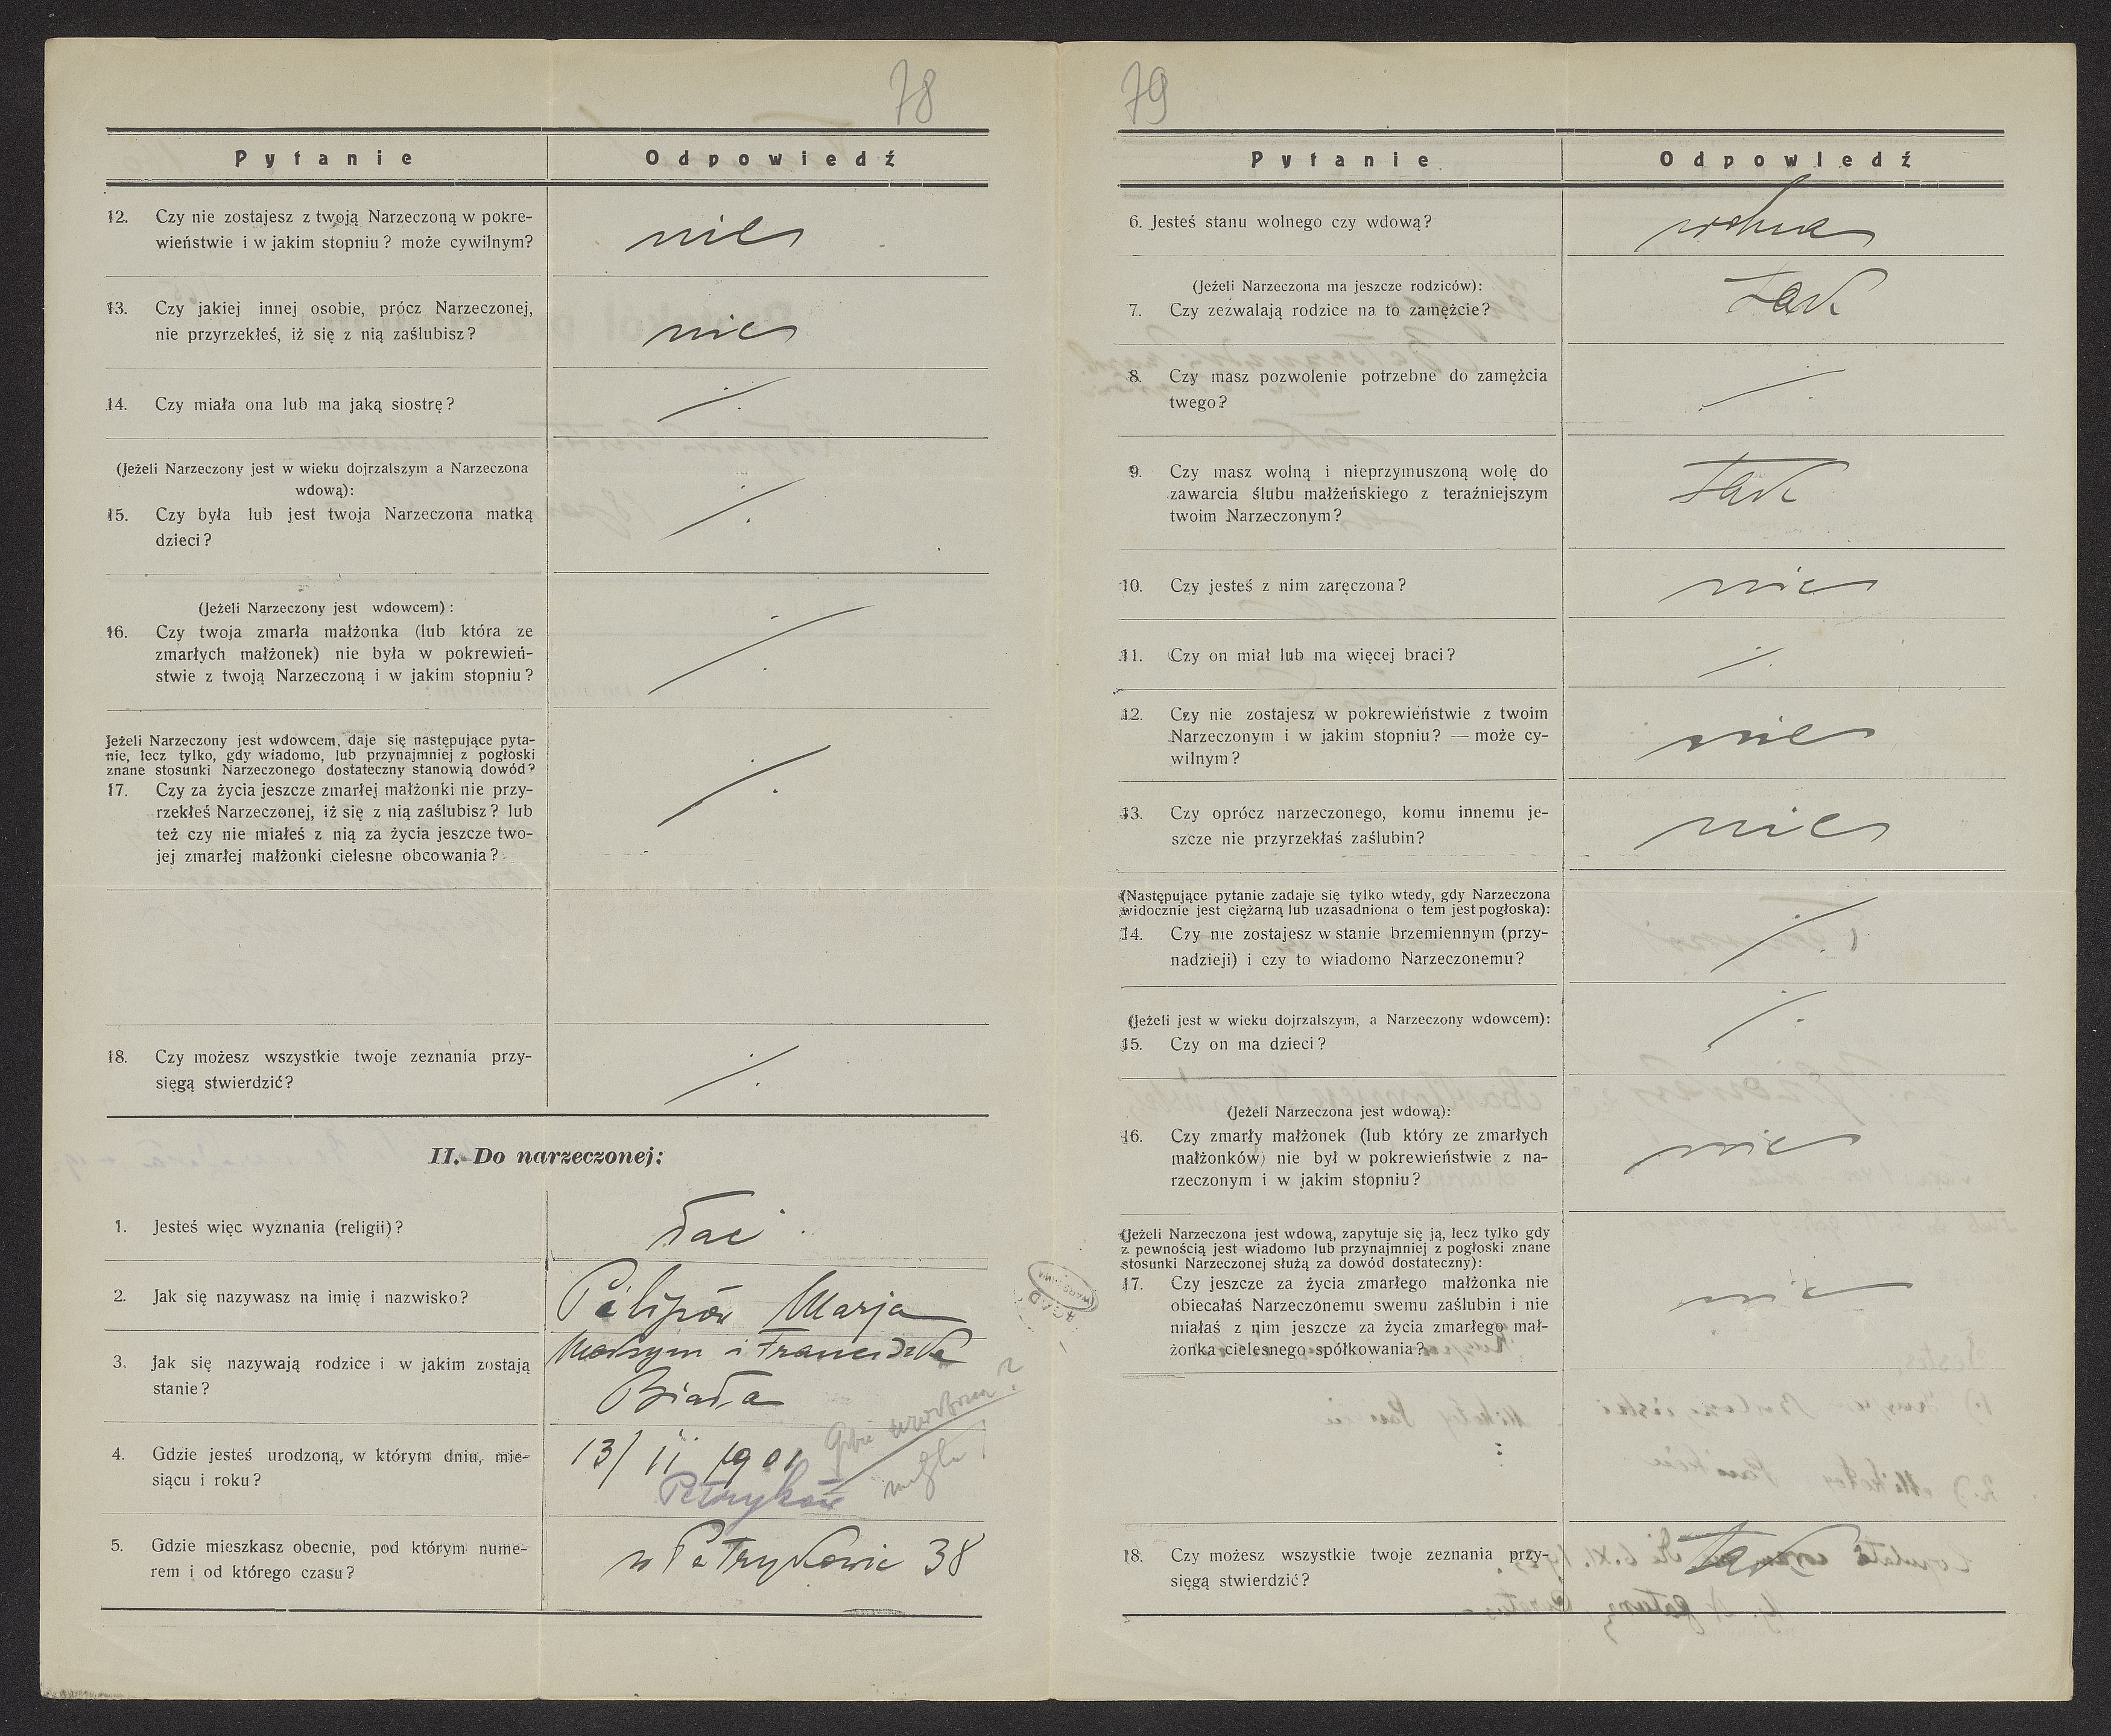 78
Pytanie Odpowiedź
12. Czy nie zostajesz z twoją Narzeczoną w pokre-
wieństwie i w jakim stopniu? może cywilnym?
nie
13. Czy jakiej innej osobie, prócz Narzeczonej,
nie przyrzekłeś, iż się z nią zaślubisz?
nie
14. Czy miała ona lub ma jaką siostrę?
(Jeżeli Narzeczony jest w wieku dojrzalszym a Narzeczona
wdową):
15. Czy była lub jest twoja Narzeczona matką
dzieci?
(Jeżeli Narzeczony jest wdowcem):
16. Czy twoja zmarła małżonka (lub która ze
zmarłych małżonek) nie była w pokrewień-
stwie z twoją Narzeczoną i w jakim stopniu?
Jeżeli Narzeczony jest wdowcem, daje się następujące pyta-
nie, lecz tylko, gdy wiadomo, lub przynajmniej z pogłoski
znane stosunki Narzeczonego dostateczny stanowią dowód?
17. Czy za życia jeszcze zmarłej małżonki nie przy-
rzekłeś Narzeczonej, iż się z nią zaślubisz? lub
też czy nie miałeś z nią za życia jeszcze two-
jej zmarłej małżonki cielesne obcowania?
18. Czy możesz wszystkie twoje zeznania przy-
sięgą stwierdzić?
II. Do narzeczonej:
1. Jesteś więc wyznania (religii)?
łac
2. Jak się nazywasz na imię i nazwisko?
Pilipów Marja
3. Jak się nazywają rodzice i w jakim zostają
stanie?
Maksym i Franciszka
Biała
4. Gdzie jesteś urodzoną, w którym dniu, mie-
siącu i roku?
13/ II 1901
Petryków
5. Gdzie mieszkasz obecnie, pod którym nume-
rem i od którego czasu?
w Petrykowie 38
79
Pytanie Odpowiedź
6. Jesteś stanu wolnego czy wdową?
wolna
(Jeżeli Narzeczona ma jeszcze rodziców):
7. Czy zezwalają rodzice na to zamęźcie?
Tak
8. Czy masz pozwolenie potrzebne do zamężcia
twego?
9. Czy masz wolną i nieprzymuszoną wolę do
zawarcia ślubu małżeńskiego z teraźniejszym
twoim Narzeczonym?
Tak
10. Czy jesteś z nim zaręczona?
nie
11. Czy on miał lub ma więcej braci?
12. Czy nie zostajesz w pokrewieństwie z twoim
Narzeczonym i w jakim stopniu? — może cy-
wilnym?
nie
13. Czy oprócz narzeczonego, komu innemu je-
szcze nie przyrzekłaś zaślubin?
nie
(Następujące pytanie zadaje się tylko wtedy, gdy Narzeczona
widocznie jest ciężarną lub uzasadniona o tem jest pogłoska):
14. Czy nie zostajesz w stanie brzemiennym (przy-
nadzieji) i czy to wiadomo Narzeczonemu?
(Jeżeli jest w wieku dojrzalszym, a Narzeczony wdowcem):
15. Czy on ma dzieci?
(Jeżeli Narzeczona jest wdową):
16. Czy zmarły małżonek (lub który ze zmarłych
małżonków) nie był w pokrewieństwie z na-
rzeczonym i w jakim stopniu?
nie
(Jeżeli Narzeczona jest wdową, zapytuje się ją, lecz tylko gdy
z pewnością jest wiadomo lub przynajmniej z pogłoski znane
stosunki Narzeczonej służą za dowód dostateczny):
17. Czy jeszcze za życia zmarłego małżonka nie
obiecałaś Narzeczonemu swemu zaślubin i nie
miałaś z nim jeszcze za życia zmarłego mał-
żonka cielesnego spółkowania?
nie
18. Czy możesz wszystkie twoje zeznania przy-
sięgą stwierdzić?
Tak